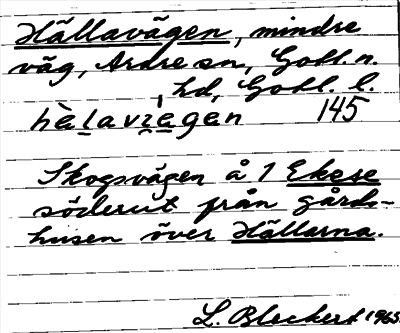 Hällavägen, mindre
väg, Ardre sn, Gotl. n.
hd, Gotl. l.
hèlavægen 145
Skogsvägen å 1 Ekese
söderut från gårds-
husen över Hällarna.
L. Bleckert 1965